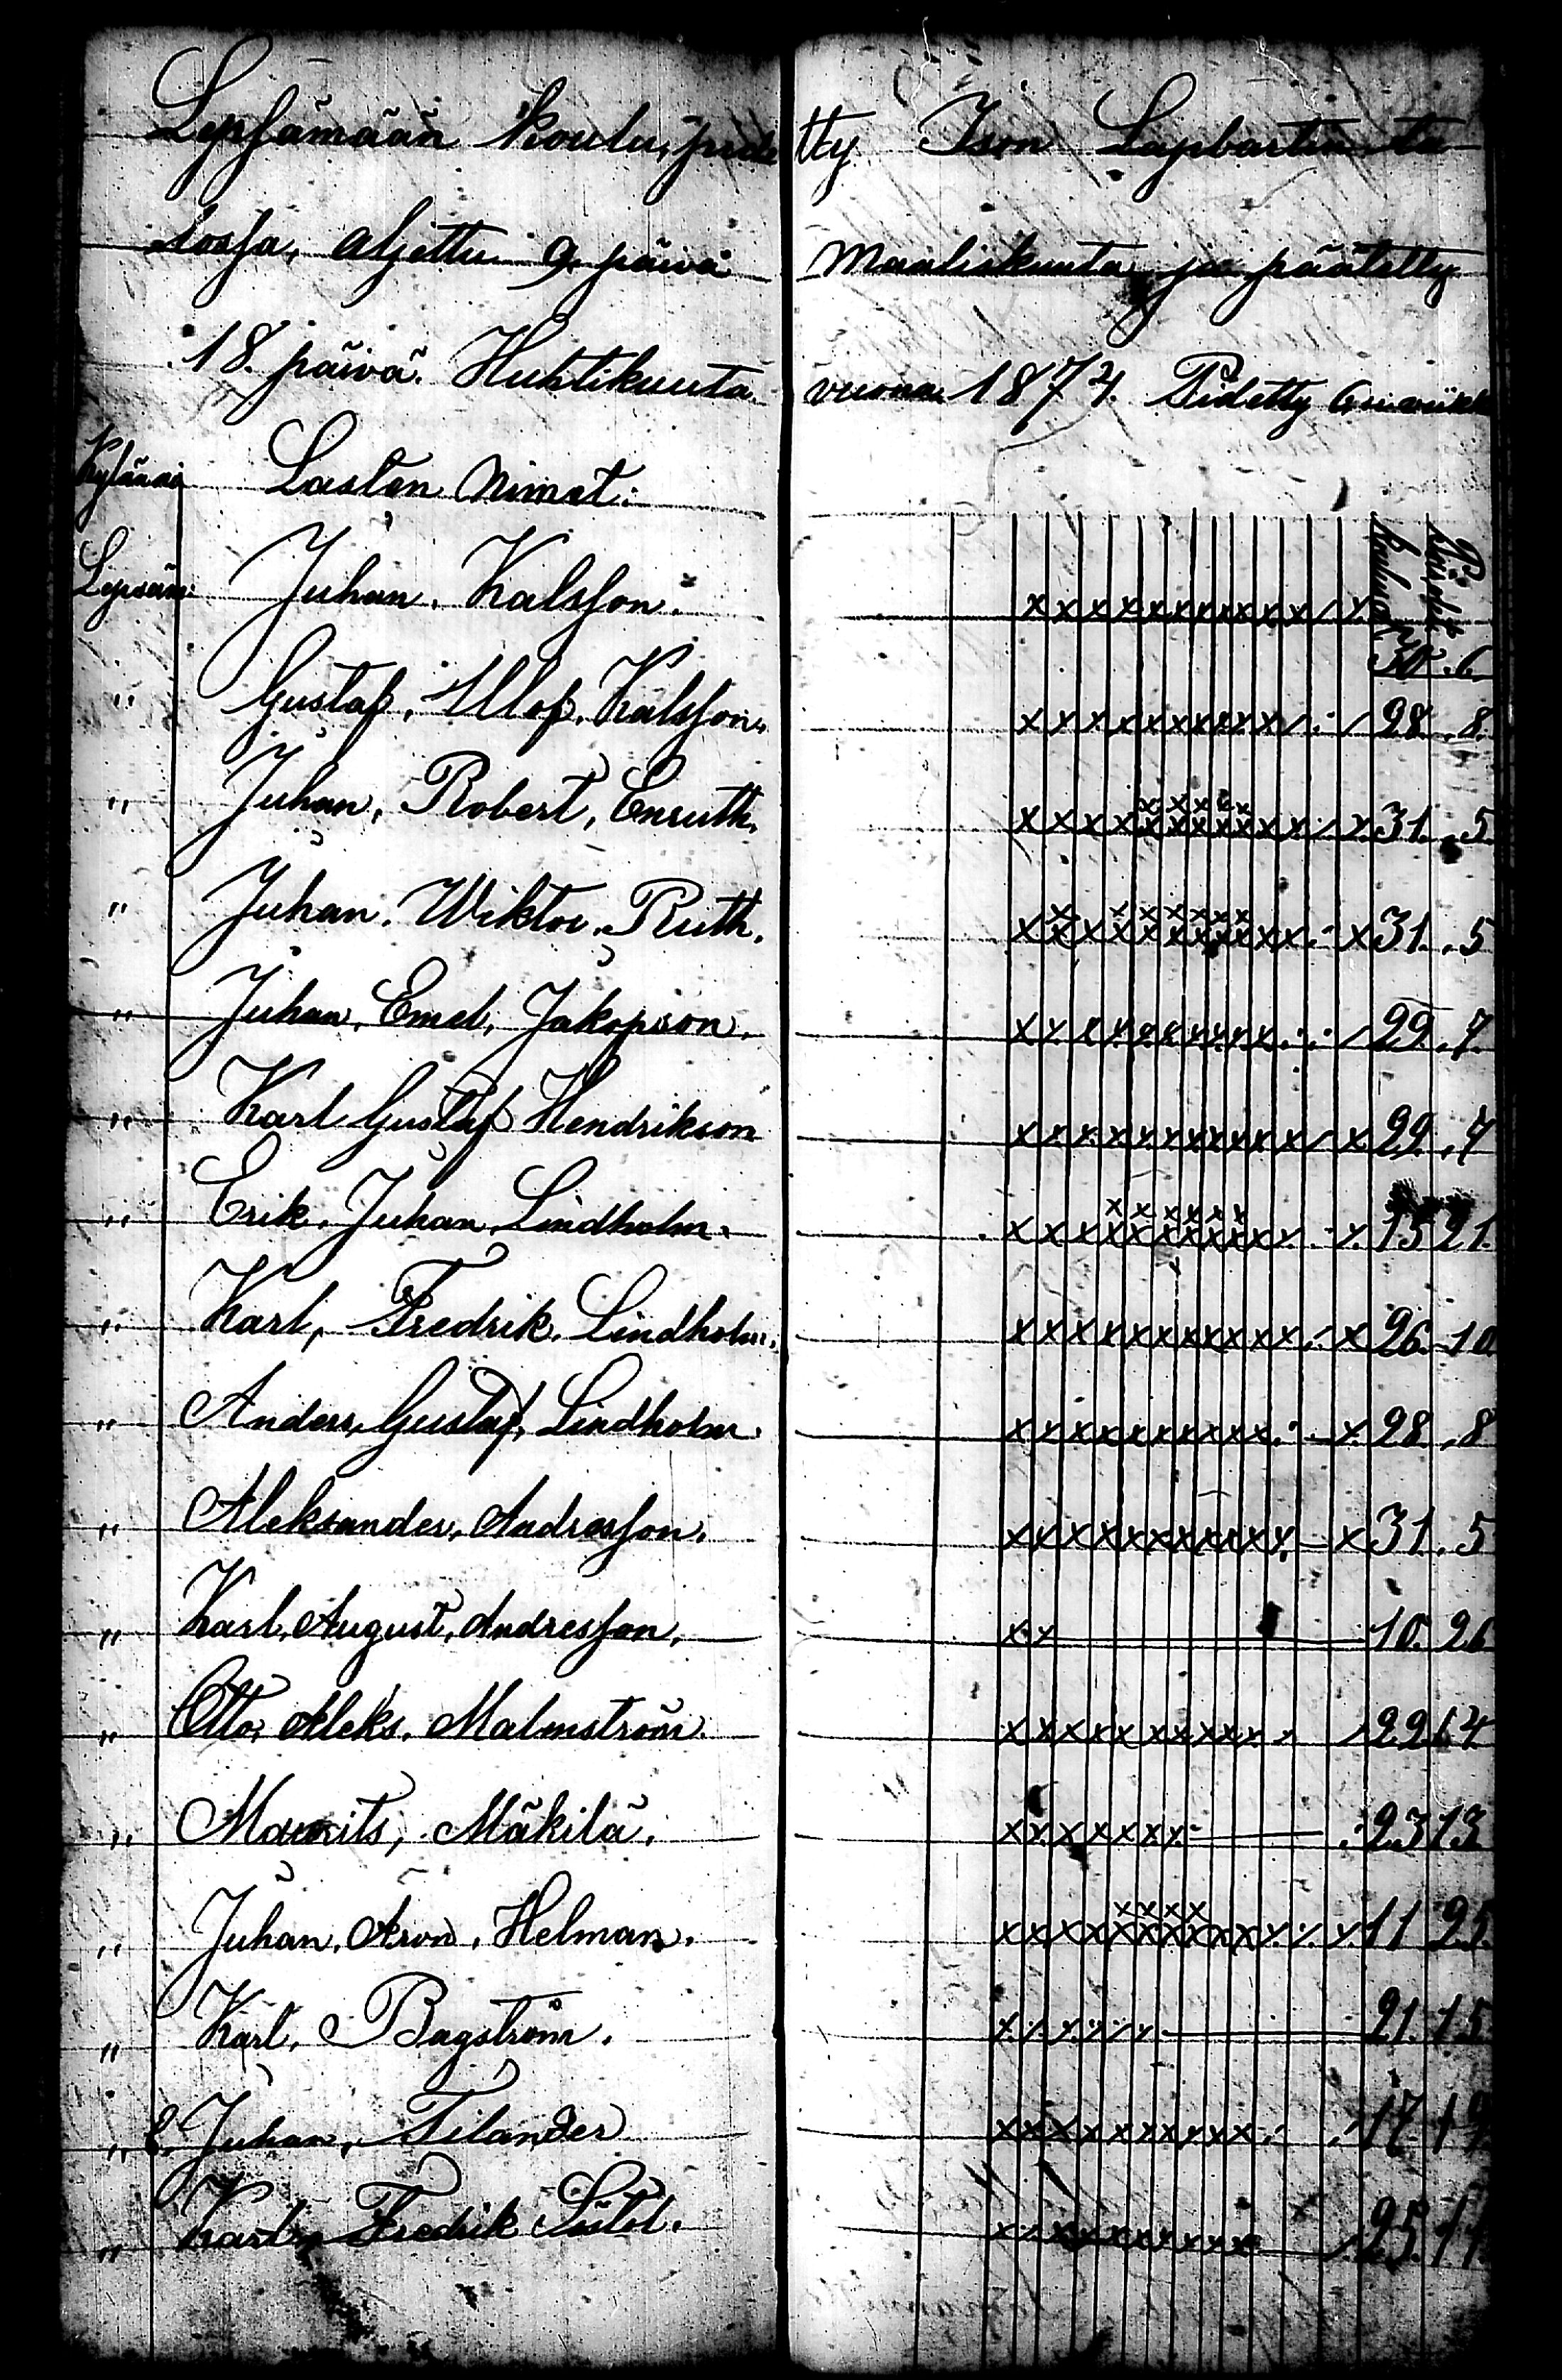 Lepsämään Koulu, pidetty Ison Lapbartin ta
lossa, aljettu 9. päivä Maaliskuuta ja päätetty
18. päivä. Huhtikuuta vuonna 1874. Pidetty 6. viikk
Lasten Nimet:
Lepsäm: Juhan. Kalsson. 30. 6.
" Gustaf. Ulof. Kalsson. 28. 8.
" Juhan, Robert, Enruth. 31. 5
" Juhan. Wiktor. Ruth. 31. 5
" Juhan, Emel, Jakopson. 29. 7.
" Karl Gustaf Hendrikson 29. 7
" Erik. Juhan Lindholm. 15 21.
" Karl, Fredrik. Lindholm. 26. 10
" Anders, Gustaf, Lindholm. 28. 8
" Aleksander, Andresson. 31. 5
" Karl, August, Andresson. 10. 26
" Otto, Aleks. Malmström. 22 14
" Maurits, Mäkilä. 23 13
" Juhan, Aron, Helman. 11 25.
" Karl, Bagström. 21. 15
" Juhan, Tilander 17. 19
" Karl, Fredrik 25. 11.